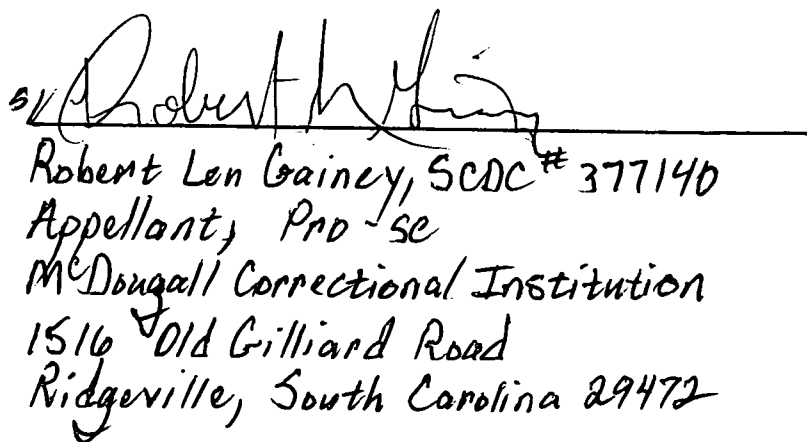 s/ Robert L. Gainey
Robert Len Gainey, SCDC # 377140
Appellant, Pro-se
McDougall Correctional Institution
1516 Old Gilliard Road
Ridgeville, South Carolina 29472